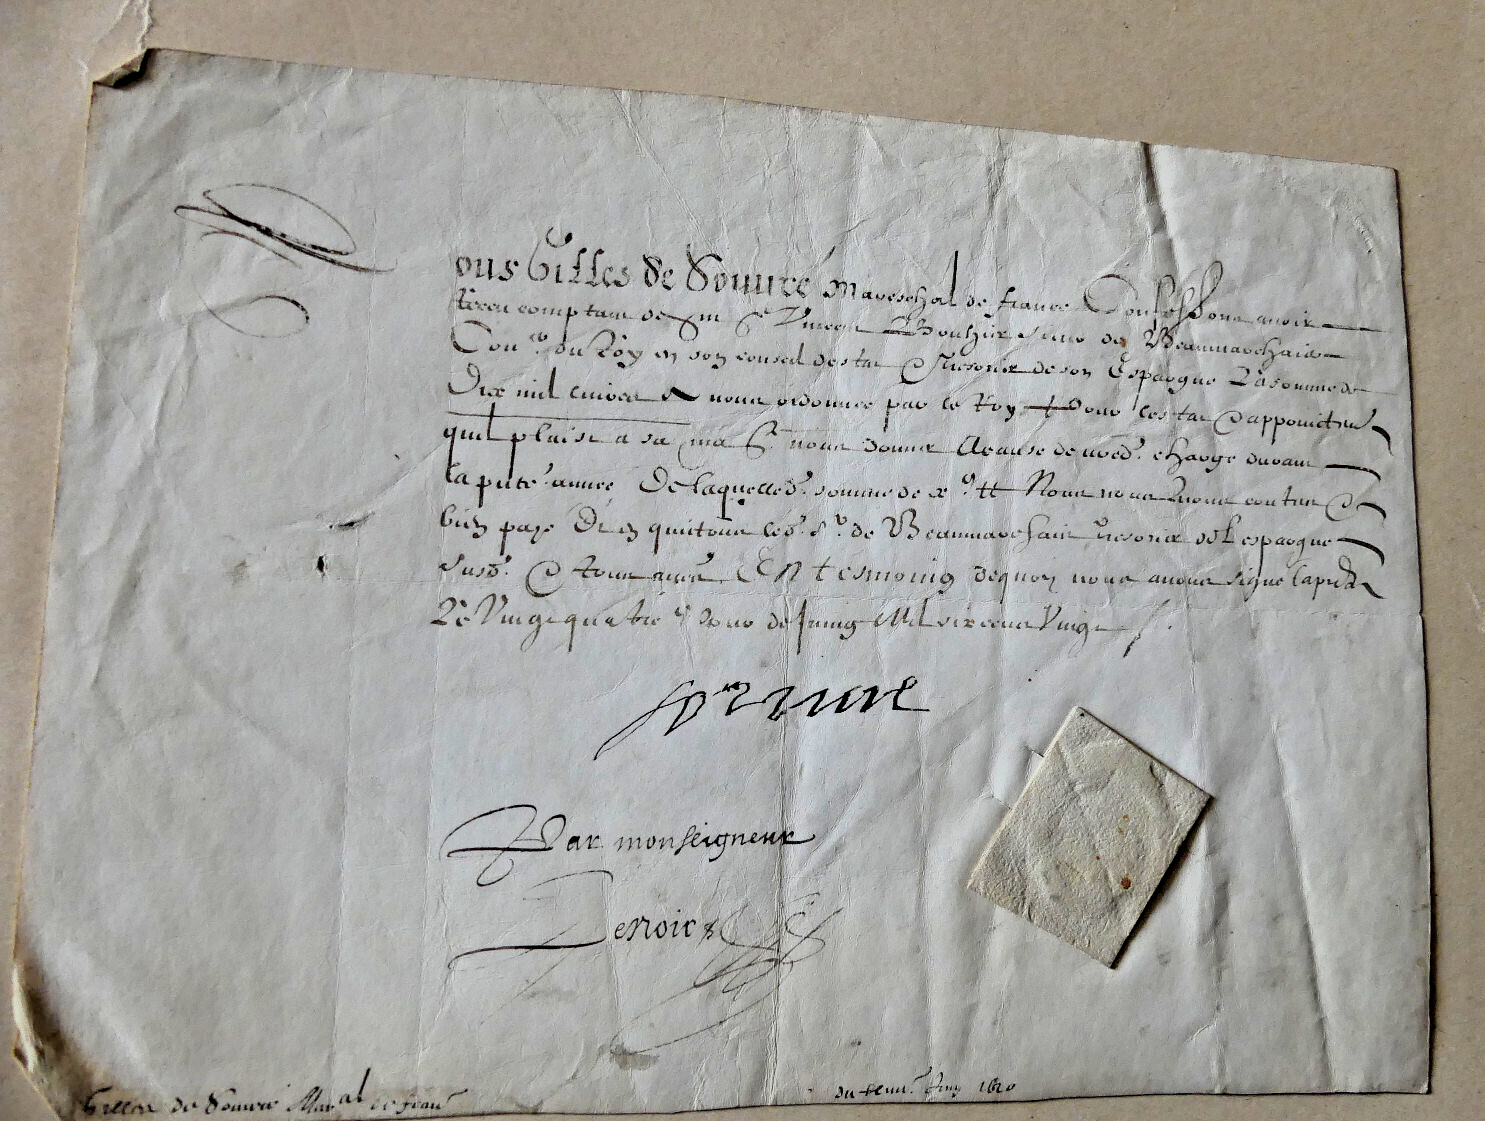 ous Gilles de Souvré Mareschal de france Confessons avoir
Receu comptant de Me Vincent Bouhier sieur de Beaumarchais
Coner du Roy en son conseil destat & Tresorier de son Espargne La somme de
Dix mil livres A nous ordonnée par le Roy pour lestat & appoinctement
quil plaist a sa ma nous donner A cause de nred. charge durant
la pnte année De laquelled. somme de xm tt Nous nous tenons contans &
bien payé & en quictons led. Sr de Beaumarchais Tresorier de lespargne
susd. & tous autres En tesmoing dequoy nous avons signé la pnte
Le Vingt quatre jour de Juing Mil six cens Vingt
Souvré
Par monseigneur
Lenoir
Gilles de Souvré Maral de france
du Juing 1620